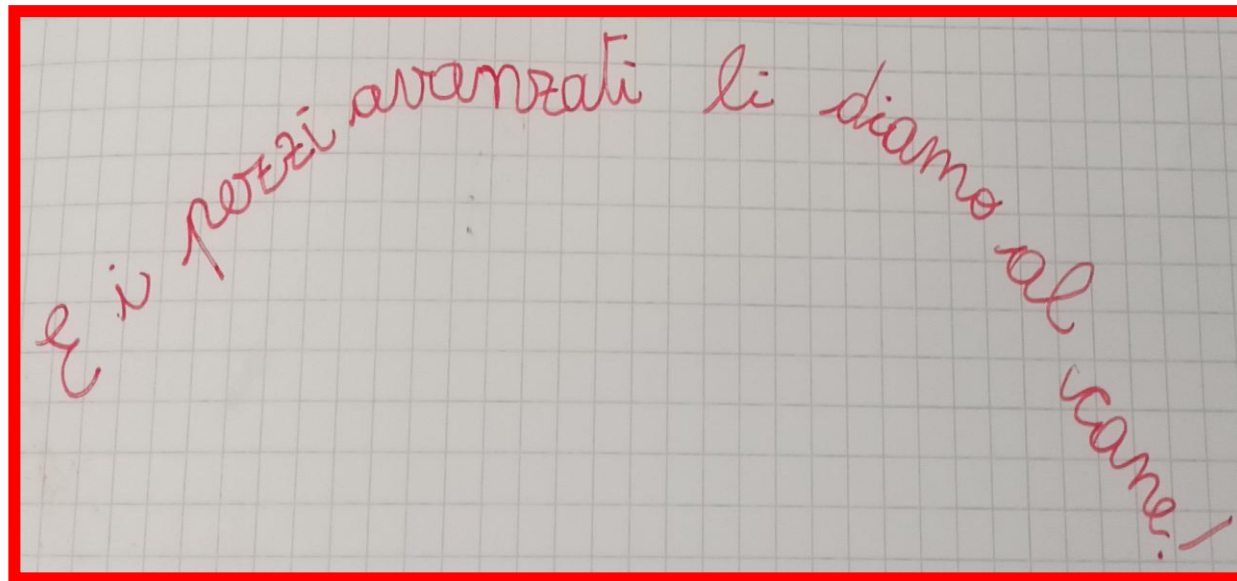 E i pezzi avanzati li diamo al cane!